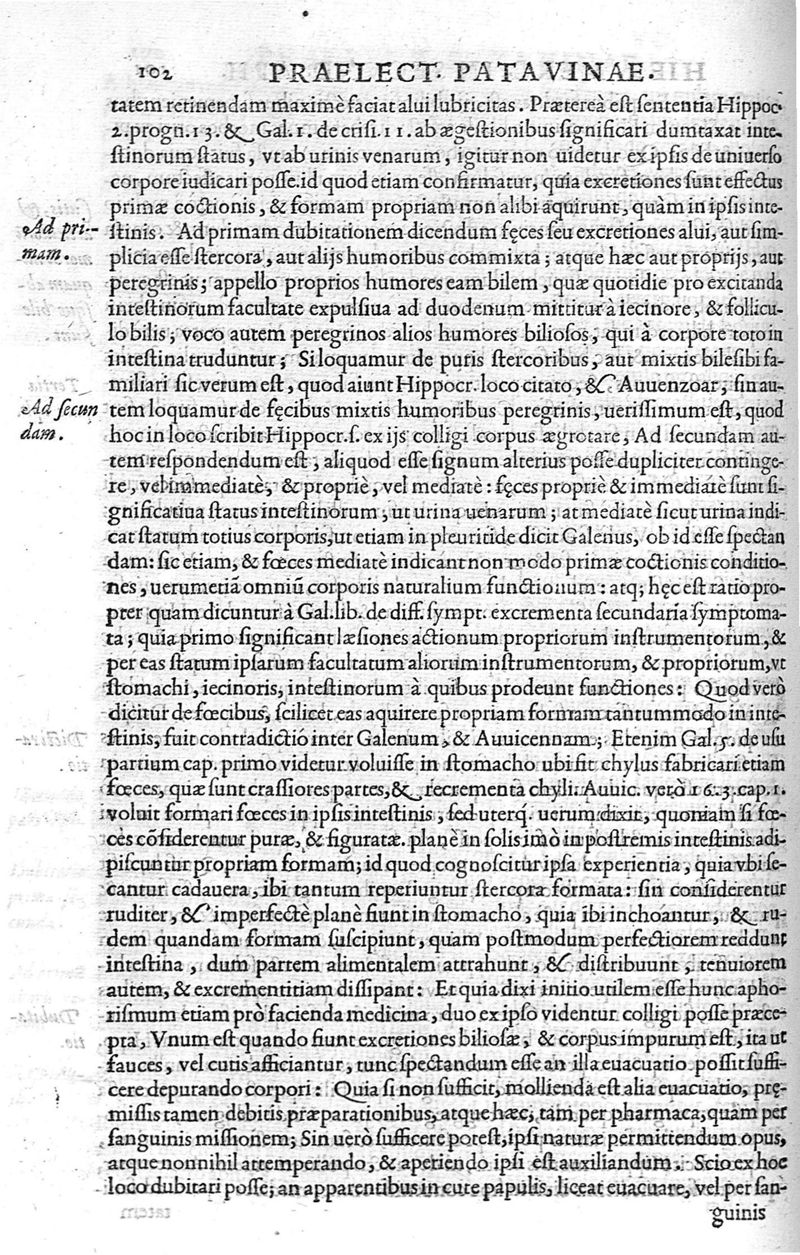 102 PRAELECT. PATAVINAE.
tatem retinendam maximè faciat alui lubricitas. Prætereà est sententia Hippoc.
2. progn. 13. & Gal. 1. de crisi. 11. ab ægestionibus significari dumtaxat inte-
stinorum status, vt ab urinis venarum, igitur non uidetur ex ipsis de uniuerso
corpore iudicari posse. id quod etiam confirmatur, quia excretiones sunt effectus
primæ coctionis, & formam propriam non alibi aquirunt, quàm in ipsis inte-
Ad pri- stinis. Ad primam dubitationem dicendum fęces seu excretiones alui, aut sim-
mam. plicia esse stercora, aut alijs humoribus commixta; atque hæc aut proprijs, aut
peregrinis; appello proprios humores eam bilem, quæ quotidie pro excitanda
intestinorum facultate expulsiua ad duodenum mittitur à iecinore, & follicu-
lo bilis; voco autem peregrinos alios humores biliosos, qui à corpore toto in
intestina truduntur; Si loquamur de puris stercoribus, aut mixtis bile sibi fa-
miliari sic verum est, quod aiunt Hippocr. loco citato, & Auuenzoar, sin au-
Ad secun tem loquamur de fęcibus mixtis humoribus peregrinis, uerissimum est, quod
dam. hoc in loco scribit Hippocr. s. ex ijs colligi corpus ægrotare, Ad secundam au-
tem respondendum est, aliquod esse signum alterius posse dupliciter continge-
re, vel immediatè, & propriè, vel mediatè: fęces propriè & immediatè sunt si-
gnificatiua status intestinorum, ut urina uenarum; at mediatè sicut urina indi-
cat statum totius corporis, ut etiam in pleuritide dicit Galenus, ob id esse spectan
dam: sic etiam, & fœces mediatè indicant non modo primæ coctionis conditio-
nes, uerumetiã omniũ corporis naturalium functionum: atq; hęc est ratio pro-
pter quam dicuntur à Gal. lib. de diff. sympt. excrementa secundaria symptoma-
ta; quia primo significant læsiones actionum propriorum instrumentorum, &
per eas statum ipsarum facultatum aliorum instrumentorum, & propriorum, vt
stomachi, iecinoris, intestinorum à quibus prodeunt functiones: Quod verò
dicitur de fœcibus, scilicet eas aquirere propriam formam tantummodo in inte-
stinis, fuit contradictiõ inter Galenum, & Auuicennam; Etenim Gal. 5. de usu
partium cap. primo videtur voluisse in stomacho ubi fit chylus fabricari etiam
fœces, quæ sunt crassiores partes, & recrementa chyli. Auuic. verò 16. 3. cap. 1.
voluit formari fœces in ipsis intestinis, sed uterq. uerum dixit, quoniam si fœ-
ces cõsiderentur puræ, & figuratæ. planè in solis imò in postremis intestinis adi-
piscuntur propriam formam; id quod cognoscitur ipsa experientia, quia vbi se-
cantur cadauera, ibi tantum reperiuntur stercora formata: sin considerentur
ruditer, & imperfectè planè fiunt in stomacho, quia ibi inchoantur, & ru-
dem quandam formam suscipiunt, quam postmodum perfectiorem reddunt
intestina, dum partem alimentalem attrahunt, & distribuunt, tenuiorem
autem, & excrementitiam dissipant: Et quia dixi initio utilem esse hunc apho-
rismum etiam prò facienda medicina, duo ex ipso videntur colligi posse præce-
pta, Vnum est quando fiunt excretiones biliosæ, & corpus impurum est, ita ut
fauces, vel cutis afficiantur, tunc spectandum esse an illa euacuatio possit suffi-
cere depurando corpori: Quia si non sufficit, mollienda est alia euacuatio, prę-
missis tamen debitis præparationibus, atque hæc, tam per pharmaca, quam per
sanguinis missionem; Sin uerò sufficere potest, ipsi naturæ permittendum opus,
atque nonnihil attemperando, & aperiendo ipsi est auxiliandum. Scio ex hoc
loco dubitari posse; an apparentibus in cute papulis, liceat euacuare, vel per san-
guinis